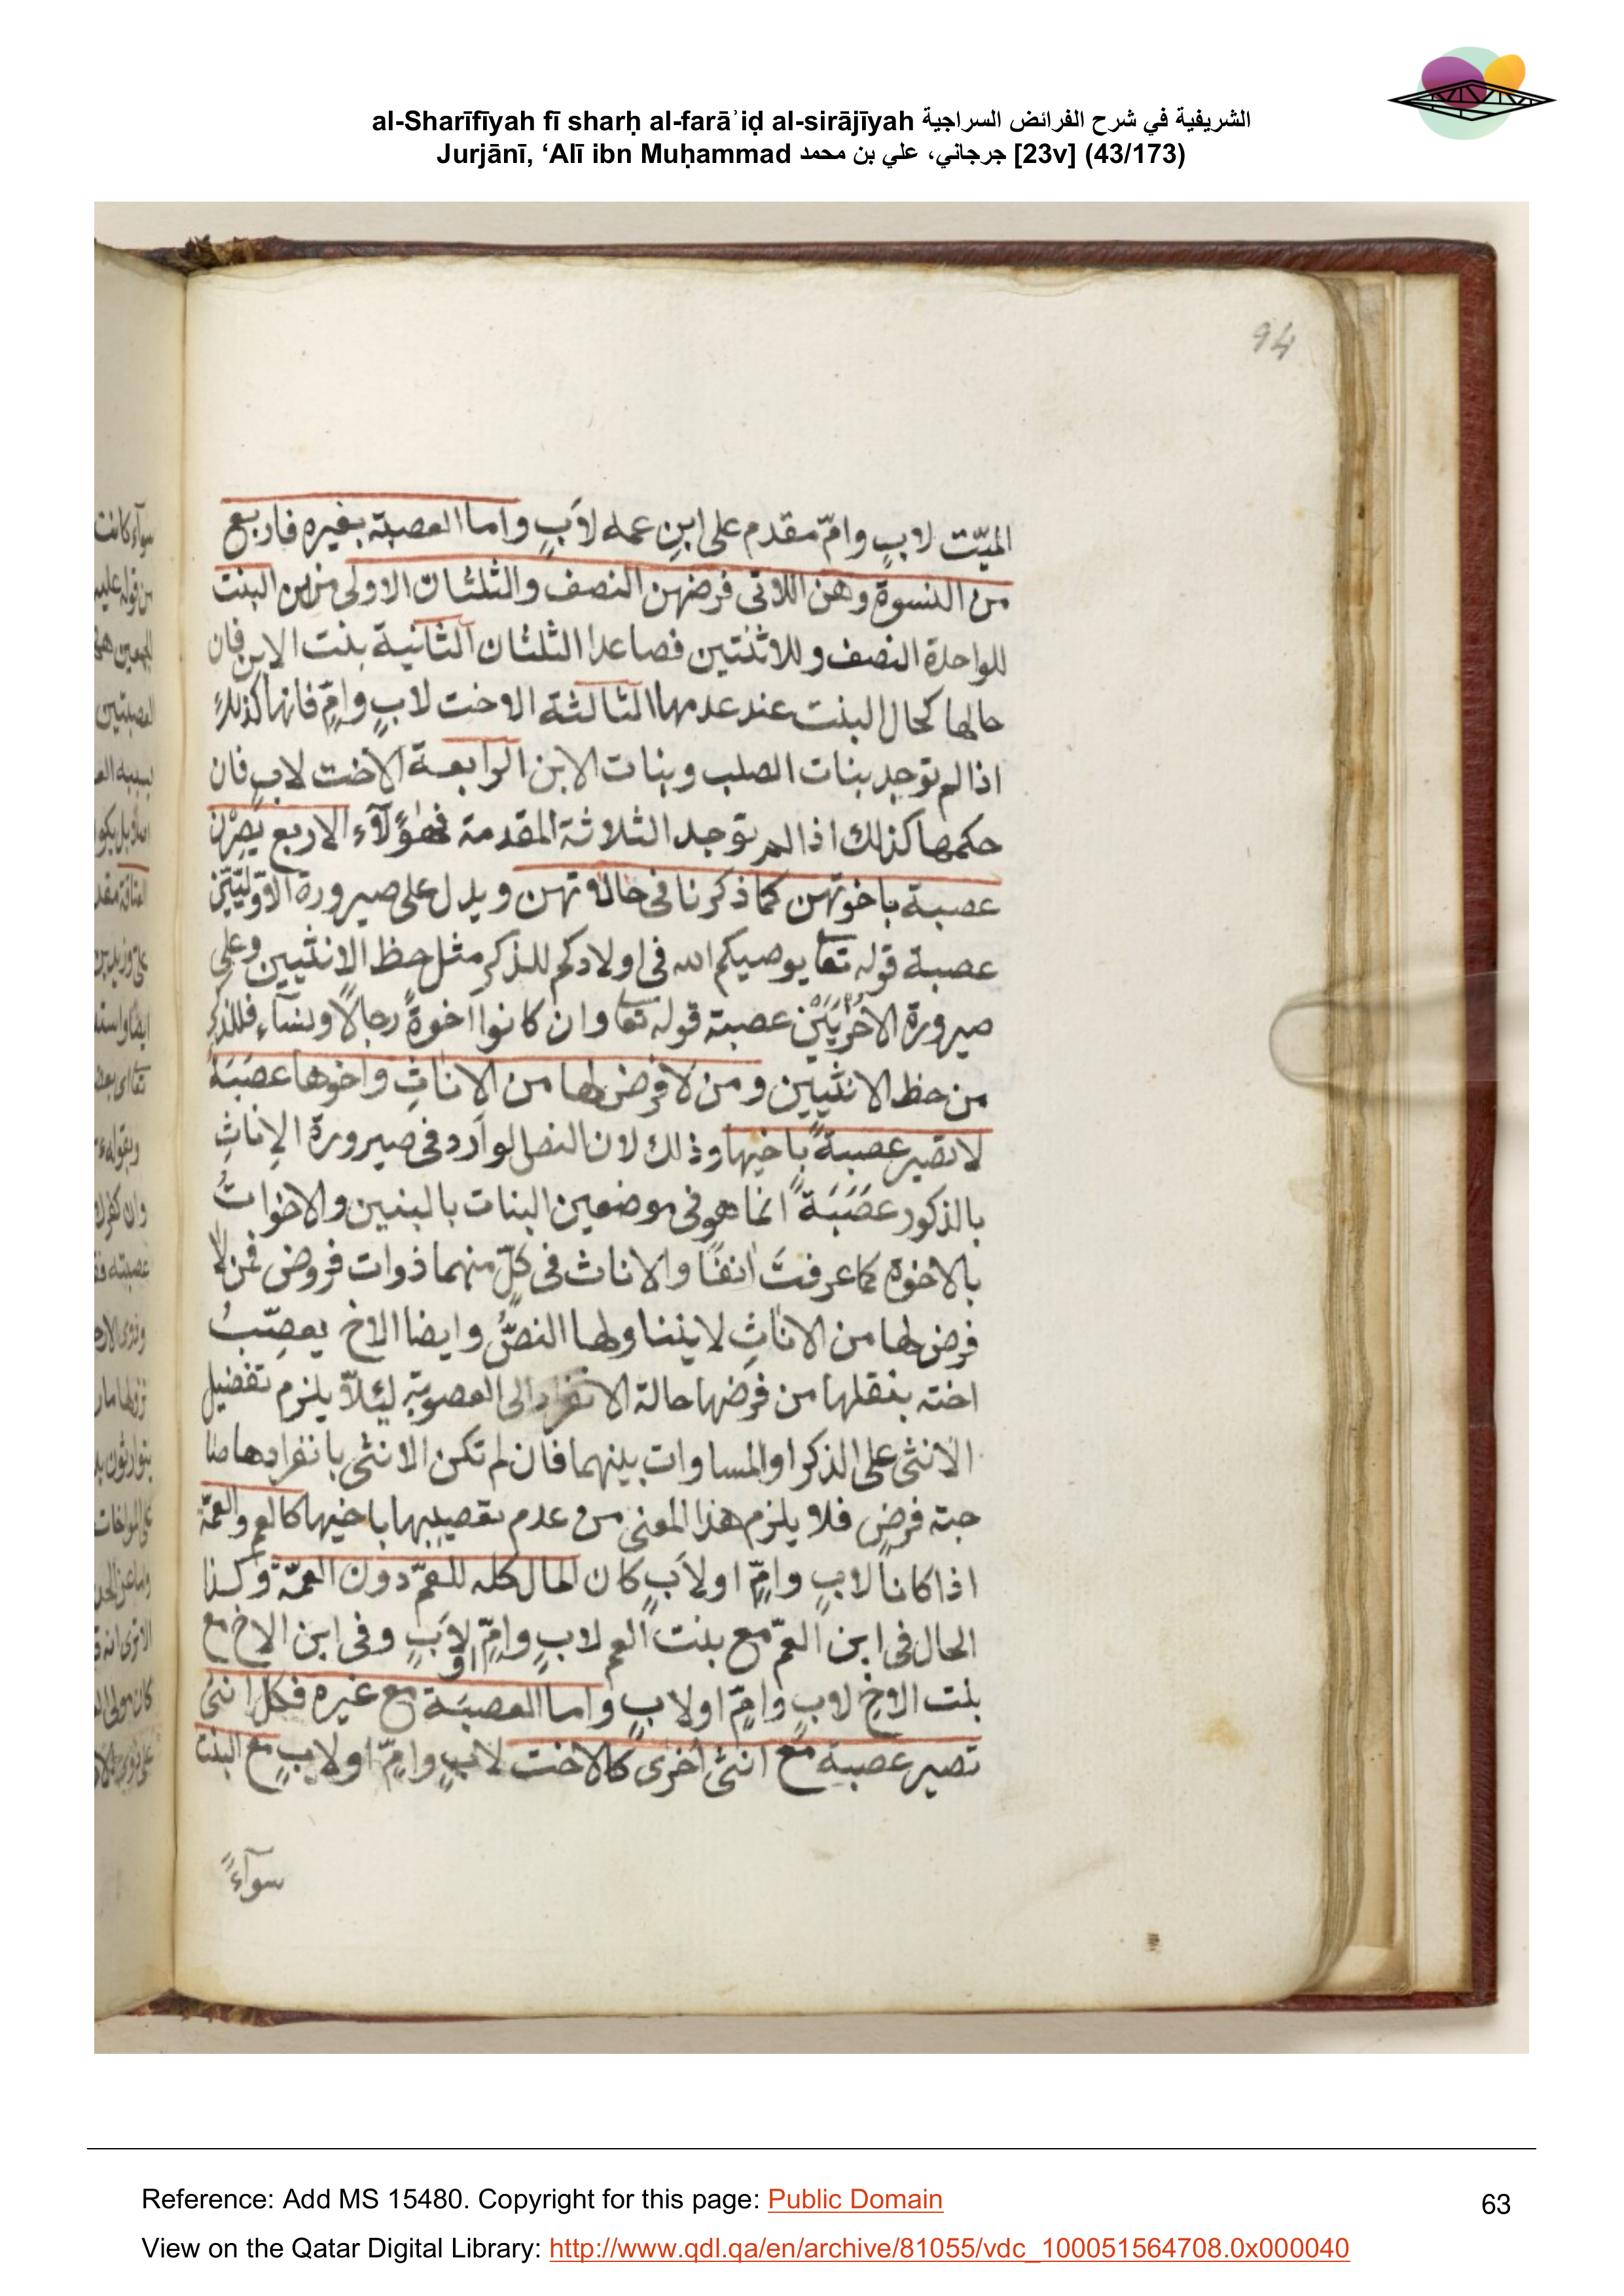 al-Sharīfīyah fī sharḥ al-farāʾiḍ al-sirājīyah الشريفية في شرح الفرائض السراجية
Jurjānī, ‘Alī ibn Muḥammad جرجاني، علي بن محمد [23v] (43/173)
94
الميّت لابٍ وامّ مقدم على ابنِ عمه لاَبٍ واما العصبة بغيره فاربع
من النسوة وهن اللاتى فرضهن النصف والثلثان الاولى منهن البنت
للواحدة النصف وللاثنتين فصاعدا الثلثان الثانية بنت الابن فان
حالها كحال البنت عند عدمها الثالثة الاخت لابٍ وامٍّ فانها كذلك
اذا لم توجد بنات الصلب وبنات الابن الرابعة الاخت لابٍ فان
حكمها كذلك اذا لم توجد الثلاثة المقدمة فهؤلآء الاربع يَصِرْن
عصبة باخوتهن كما ذكرنا فى حالاتهن ويدل على صيرورة الاوّليّتين
عصبة قوله تعا يوصيكم الله فى اولادكم للذكر مثل حظ الانثيين وعلى
صيرورة الاخريَيْن عصبة قوله تعا وان كانوا اخوةً رجالاً ونسآءً فللذكر
من حظ الانثيين ومن لا فرض لها من الاناثِ واخوها عصَبَة
لا تصير عصبةً باخيها وذلك لان النص الوارد فى صيرورة الاِناثِ
بالذكور عَصَبَةً انما هو فى موضعين البنات بالبنين والاخواتُ
بالاخوة كما عرفتَ انفًا والاناث فى كلّ منهما ذوات فروض فمن لا
فرض لها من الاناثِ لا يتناولها النصُّ وايضا الاخ يعصِّبُ
اخته بنقلها من فرضها حالة الانفراد الى العصوبة لئلاّ يلزم تفضيل
الانثى على الذكر او المساوات بينهما فان لم تكن الانثى بانفرادها صا
حبة فرضٍ فلا يلزم هذا المعنى من عدم تعصيبها باخيها كالعم والعمّة
اذا كانا لابٍ وامٍّ او لاَبٍ كان المال كله للعمّ دون العمّة وكذا
الحال فى ابن العمّ مع بنت العم لابٍ وامٍّ او لاَبٍ وفى ابن الاخ مع
بنت الاخ لابٍ وامٍّ او لابٍ واما العصبَة مع غيره فكل انثى
تصير عصبة مع انثى اخرى كالاخت لابٍ وامٍّ او لابٍ مع البنت
سوآءً
Reference: Add MS 15480. Copyright for this page: Public Domain
63
View on the Qatar Digital Library: http://www.qdl.qa/en/archive/81055/vdc_100051564708.0x000040